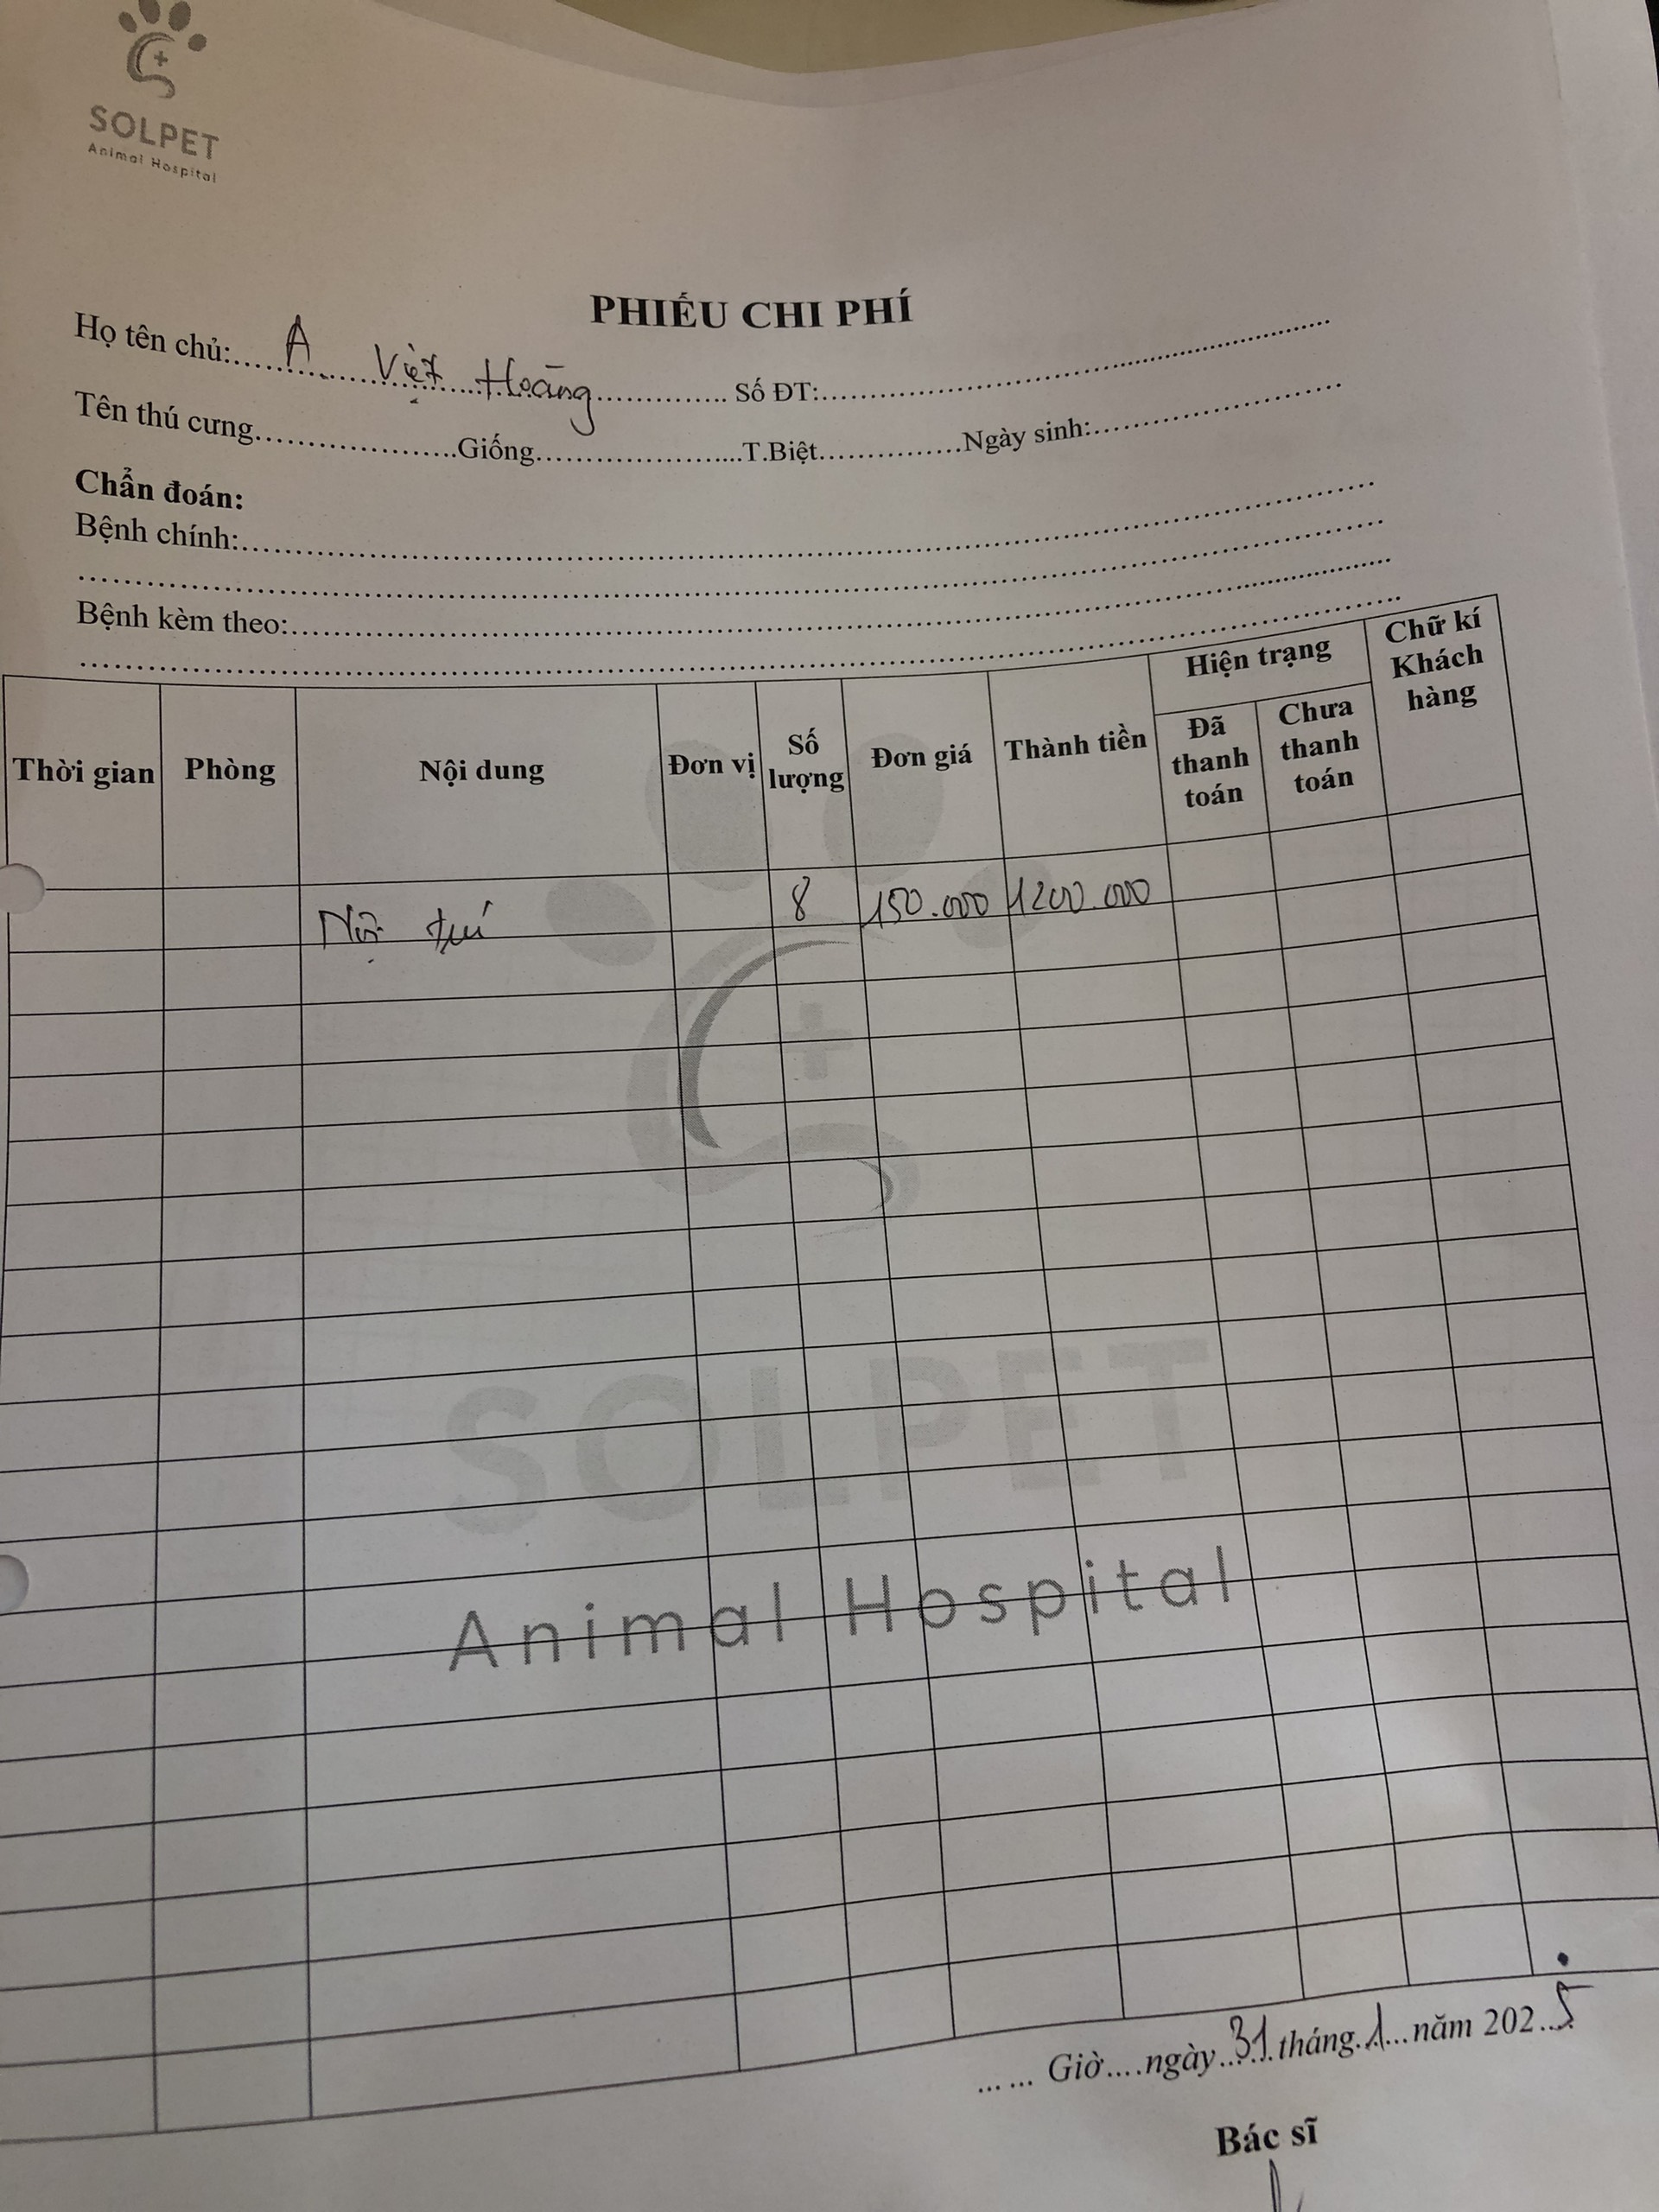 SOLPET
Animal Hospital
PHIẾU CHI PHÍ
Họ tên chủ:.....A Việt Hoàng.............. Số ĐT:..............................
Tên thú cưng....................Giống....................T.Biệt...............Ngày sinh:....................
Chẩn đoán:
Bệnh chính:....................
Bệnh kèm theo:....................
Thời gian Phòng Nội dung Đơn vị Số lượng Đơn giá Thành tiền Hiện trạng Đã thanh toán Chưa thanh toán Chữ kí Khách hàng
Nội trú 8 150.000 1200.000
SOLPET
Animal Hospital
...... Giờ....ngày..31..tháng.1...năm 202..5
Bác sĩ